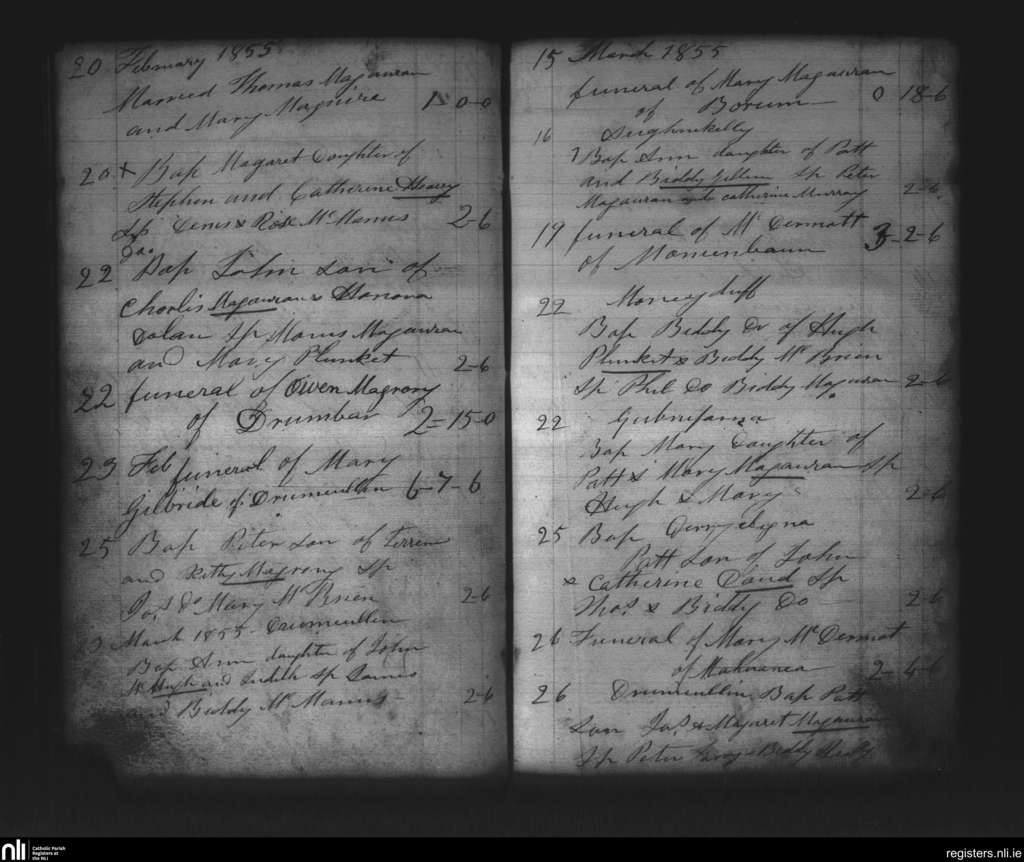 20 February 1855
Married Thomas Magauran
and Mary Maguire 1-0-0
20 + Bap Magaret Daughter of
Stephen and Catherine
Sp Denis & Rose McManus 2-6
Do
22 Bap John son of
Charlis Magauran & Honora
Dolan Sp Manus Magauran
and Mary Plunket 2-6
22 funeral of Owen Magrory
of Drumbar 2-15-0
23 Feb funeral of Mary
Gilbride of Drumcullin 6-7-6
25 Bap Peter son of
and Kitty Magrory Sp
Jas Do Mary McBrien 2-6
March 1855 Drumcullin
Bap Ann daughter of John
McHugh and Judith Sp James
and Biddy McManus 2-6
15 March 1855
funeral of Mary Magauran
of 0 18-6
16
Bap Ann daughter of Patt
and Biddy Sp Peter
Magauran catherine Murray 2-6
19 funeral of Mc Dermott
of 3-2-6
22 Moneyduff
Bap Biddy Dr of Hugh
Plunket & Biddy McBrien
Sp Phil Do Biddy Magauran 2-6
22
Bap Mary Daughter of
Patt & Mary Magauran Sp
Hugh & Mary 2-6
25 Bap
Patt son of John
& Catherine David Sp
Thos & Biddy Do 2-6
26 Funeral of Mary McDermot
of 2-4-6
26 Drumcullin Bap Patt
Son Jas & Magaret Magauran
Sp Peter & Biddy
nli Catholic Parish
Registers at
the NLI
registers.nli.ie